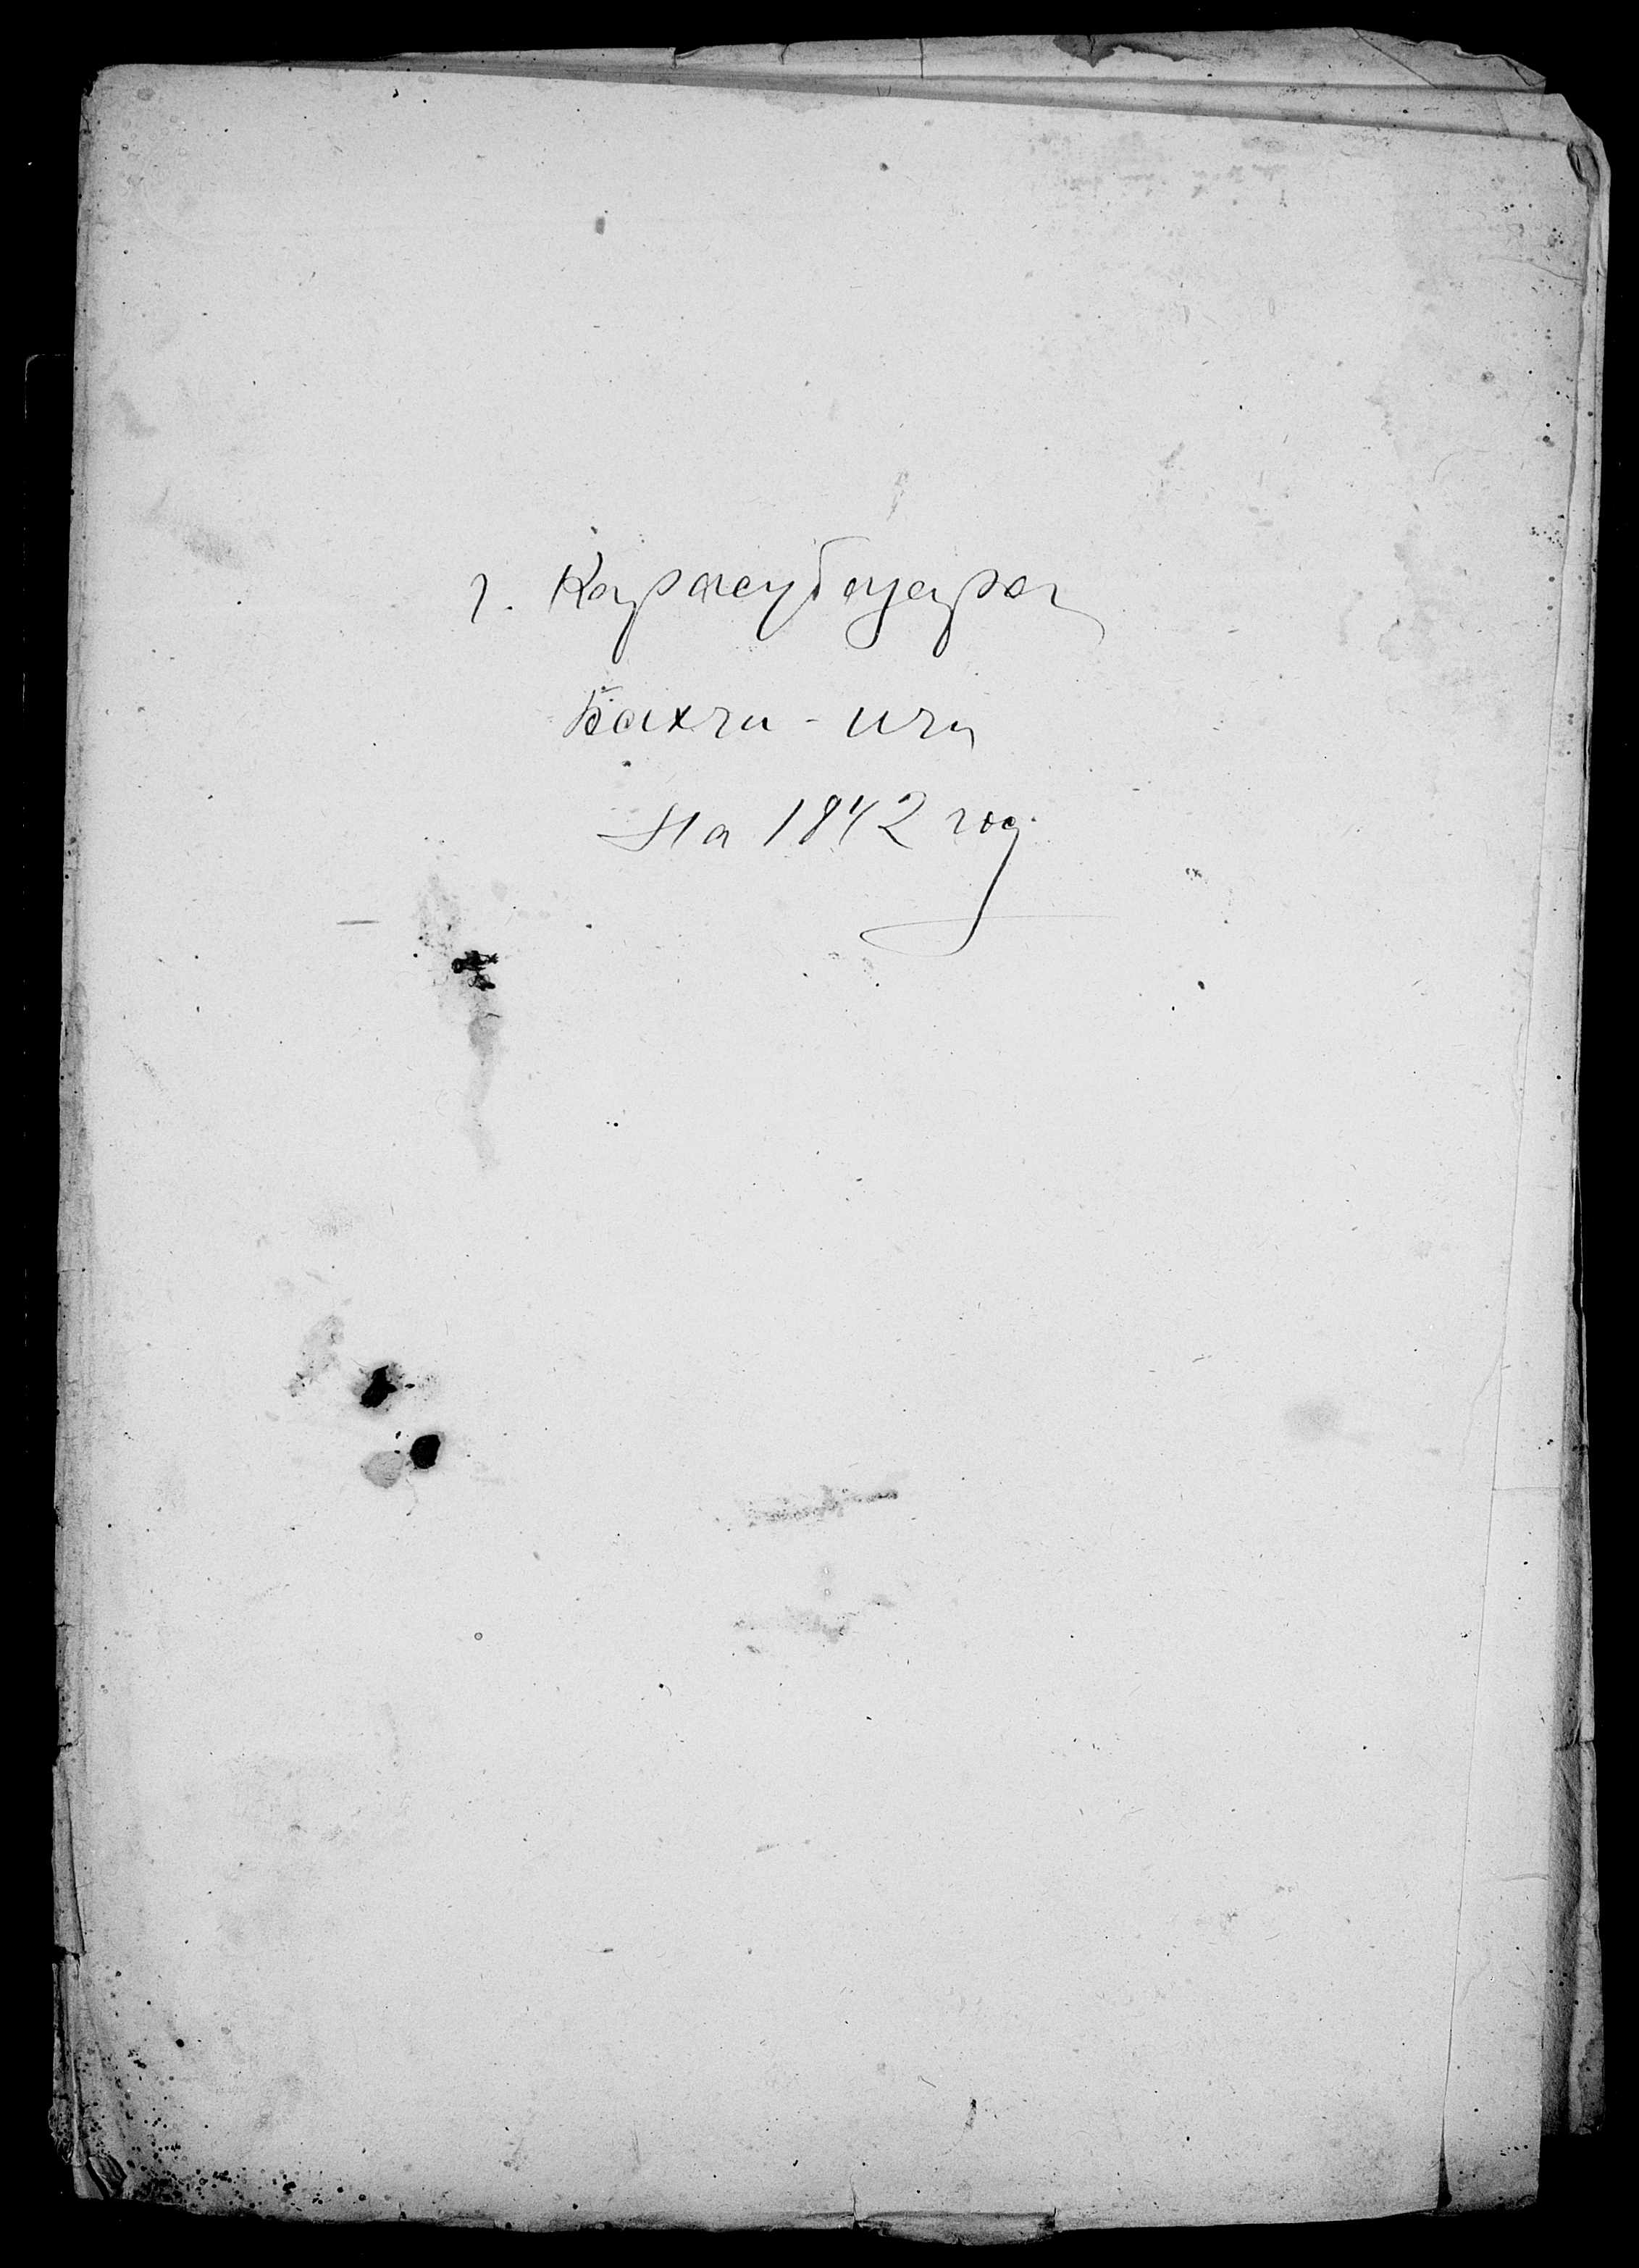 г. Карасубазара
Бахчи-ичи
На 1842 год.